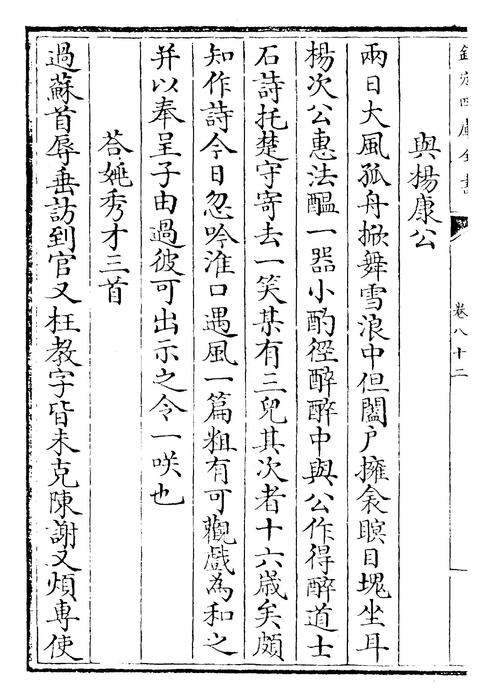 欽定四庫全書
卷八十二
與楊康公
兩日大風孤舟掀舞雪浪中但闔户擁衾瞑目塊坐耳
楊次公惠法醖一器小酌徑醉醉中與公作得醉道士
石詩托楚守寄去一笑某有三兒其次者十六嵗矣頗
知作詩今日忽吟淮口遇風一篇粗有可觀戲為和之
并以奉呈子由過彼可出示之令一咲也
荅姚秀才三首
過蘇首辱垂訪到官又枉教字皆未克陳謝又煩專使